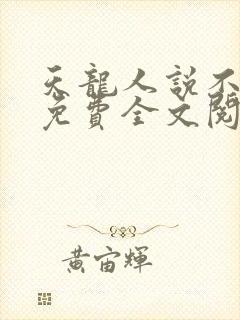 天龍人說不
免費全文閱
黃宙輝